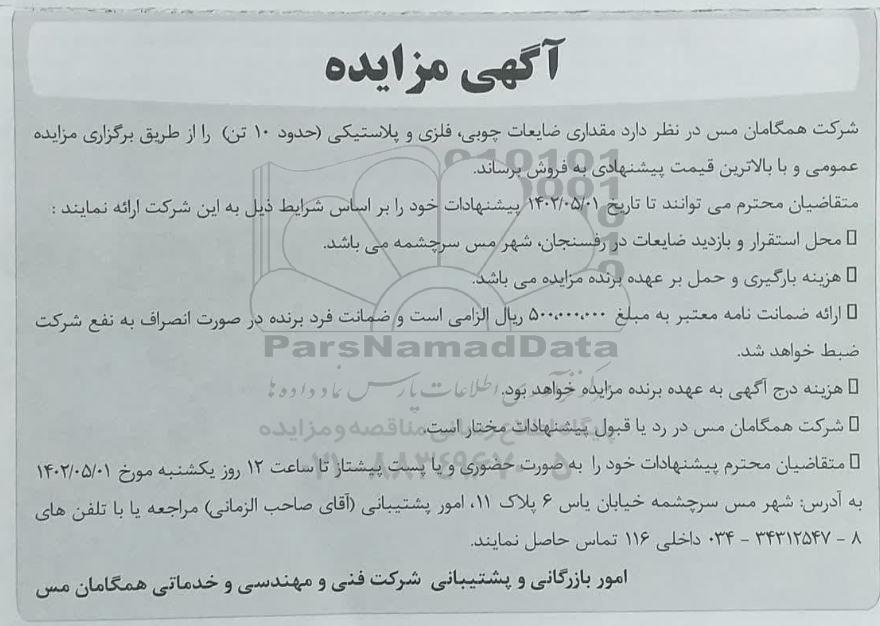 آگهی مزایده
شرکت همگامان مس در نظر دارد مقداری ضایعات چوبی، فلزی و پلاستیکی (حدود ۱۰ تن) را از طریق برگزاری مزایده
عمومی و با بالاترین قیمت پیشنهادی به فروش برساند.
متقاضیان محترم می توانند تا تاریخ ۱۴۰۲/۰۵/۰۱ پیشنهادات خود را بر اساس شرایط ذیل به این شرکت ارائه نمایند :
محل استقرار و بازدید ضایعات در رفسنجان، شهر مس سرچشمه می باشد.
هزینه بارگیری و حمل بر عهده برنده مزایده می باشد.
ارائه ضمانت نامه معتبر به مبلغ ۵۰۰,۰۰۰,۰۰۰ ریال الزامی است و ضمانت فرد برنده در صورت انصراف به نفع شرکت
ضبط خواهد شد.
ParsNamadData
هزینه درج آگهی به عهده برنده مزایده خواهد بود.
شرکت همگامان مس در رد یا قبول پیشنهادات مختار است.
متقاضیان محترم پیشنهادات خود را به صورت حضوری و یا پست پیشتاز تا ساعت ۱۲ روز یکشنبه مورخ ۱۴۰۲/۰۵/۰۱
به آدرس: شهر مس سرچشمه خیابان یاس ۶ پلاک ۱۱، امور پشتیبانی (آقای صاحب الزمانی) مراجعه یا با تلفن های
۸ - ۳۴۳۱۲۵۴۷ - ۰۳۴ داخلی ۱۱۶ تماس حاصل نمایند.
امور بازرگانی و پشتیبانی شرکت فنی و مهندسی و خدماتی همگامان مس